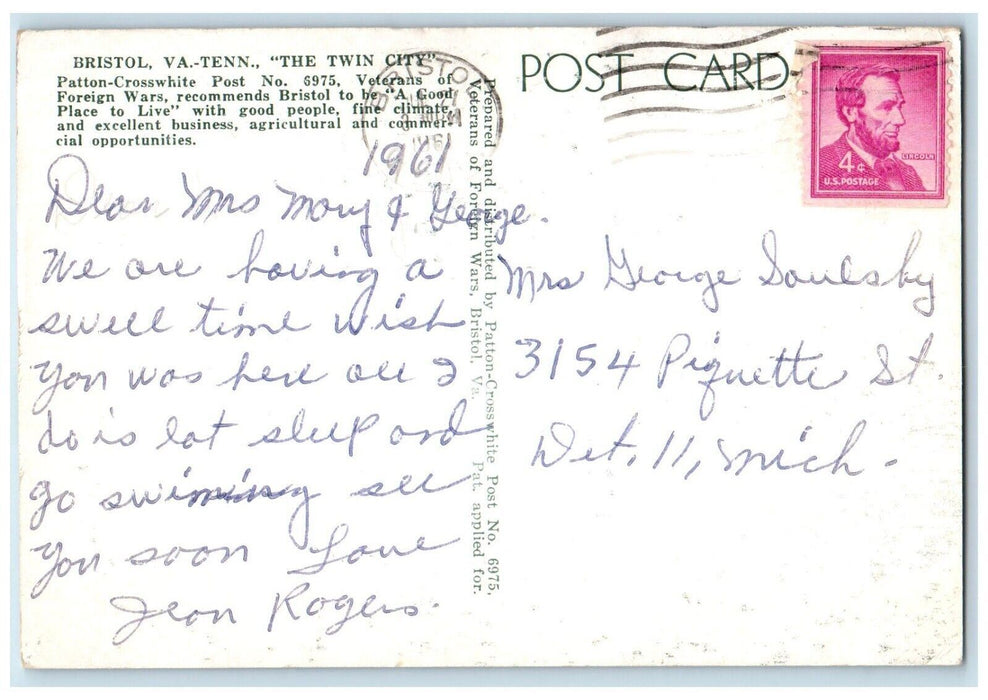 BRISTOL, VA.-TENN., "THE TWIN CITY"
Patton-Crosswhite Post No. 6975, Veterans of
Foreign Wars, recommends Bristol to be "A Good
Place to Live" with good people, fine climate,
and excellent business, agricultural and commer-
cial opportunities.
POST CARD
BRISTOL
1961
4¢
LINCOLN
U.S. POSTAGE
1961
Dear Mrs Mary & George.
We are having a
swell time wish
you was here all I
do is eat sleep and
go swiming see
you soon Love
Jean Rogers.
Prepared and distributed by Patton-Crosswhite Post No. 6975,
Veterans of Foreign Wars, Bristol, Va. Pat. applied for.
Mrs George Soulsby
3154 Piquette St.
Det. 11, Mich.